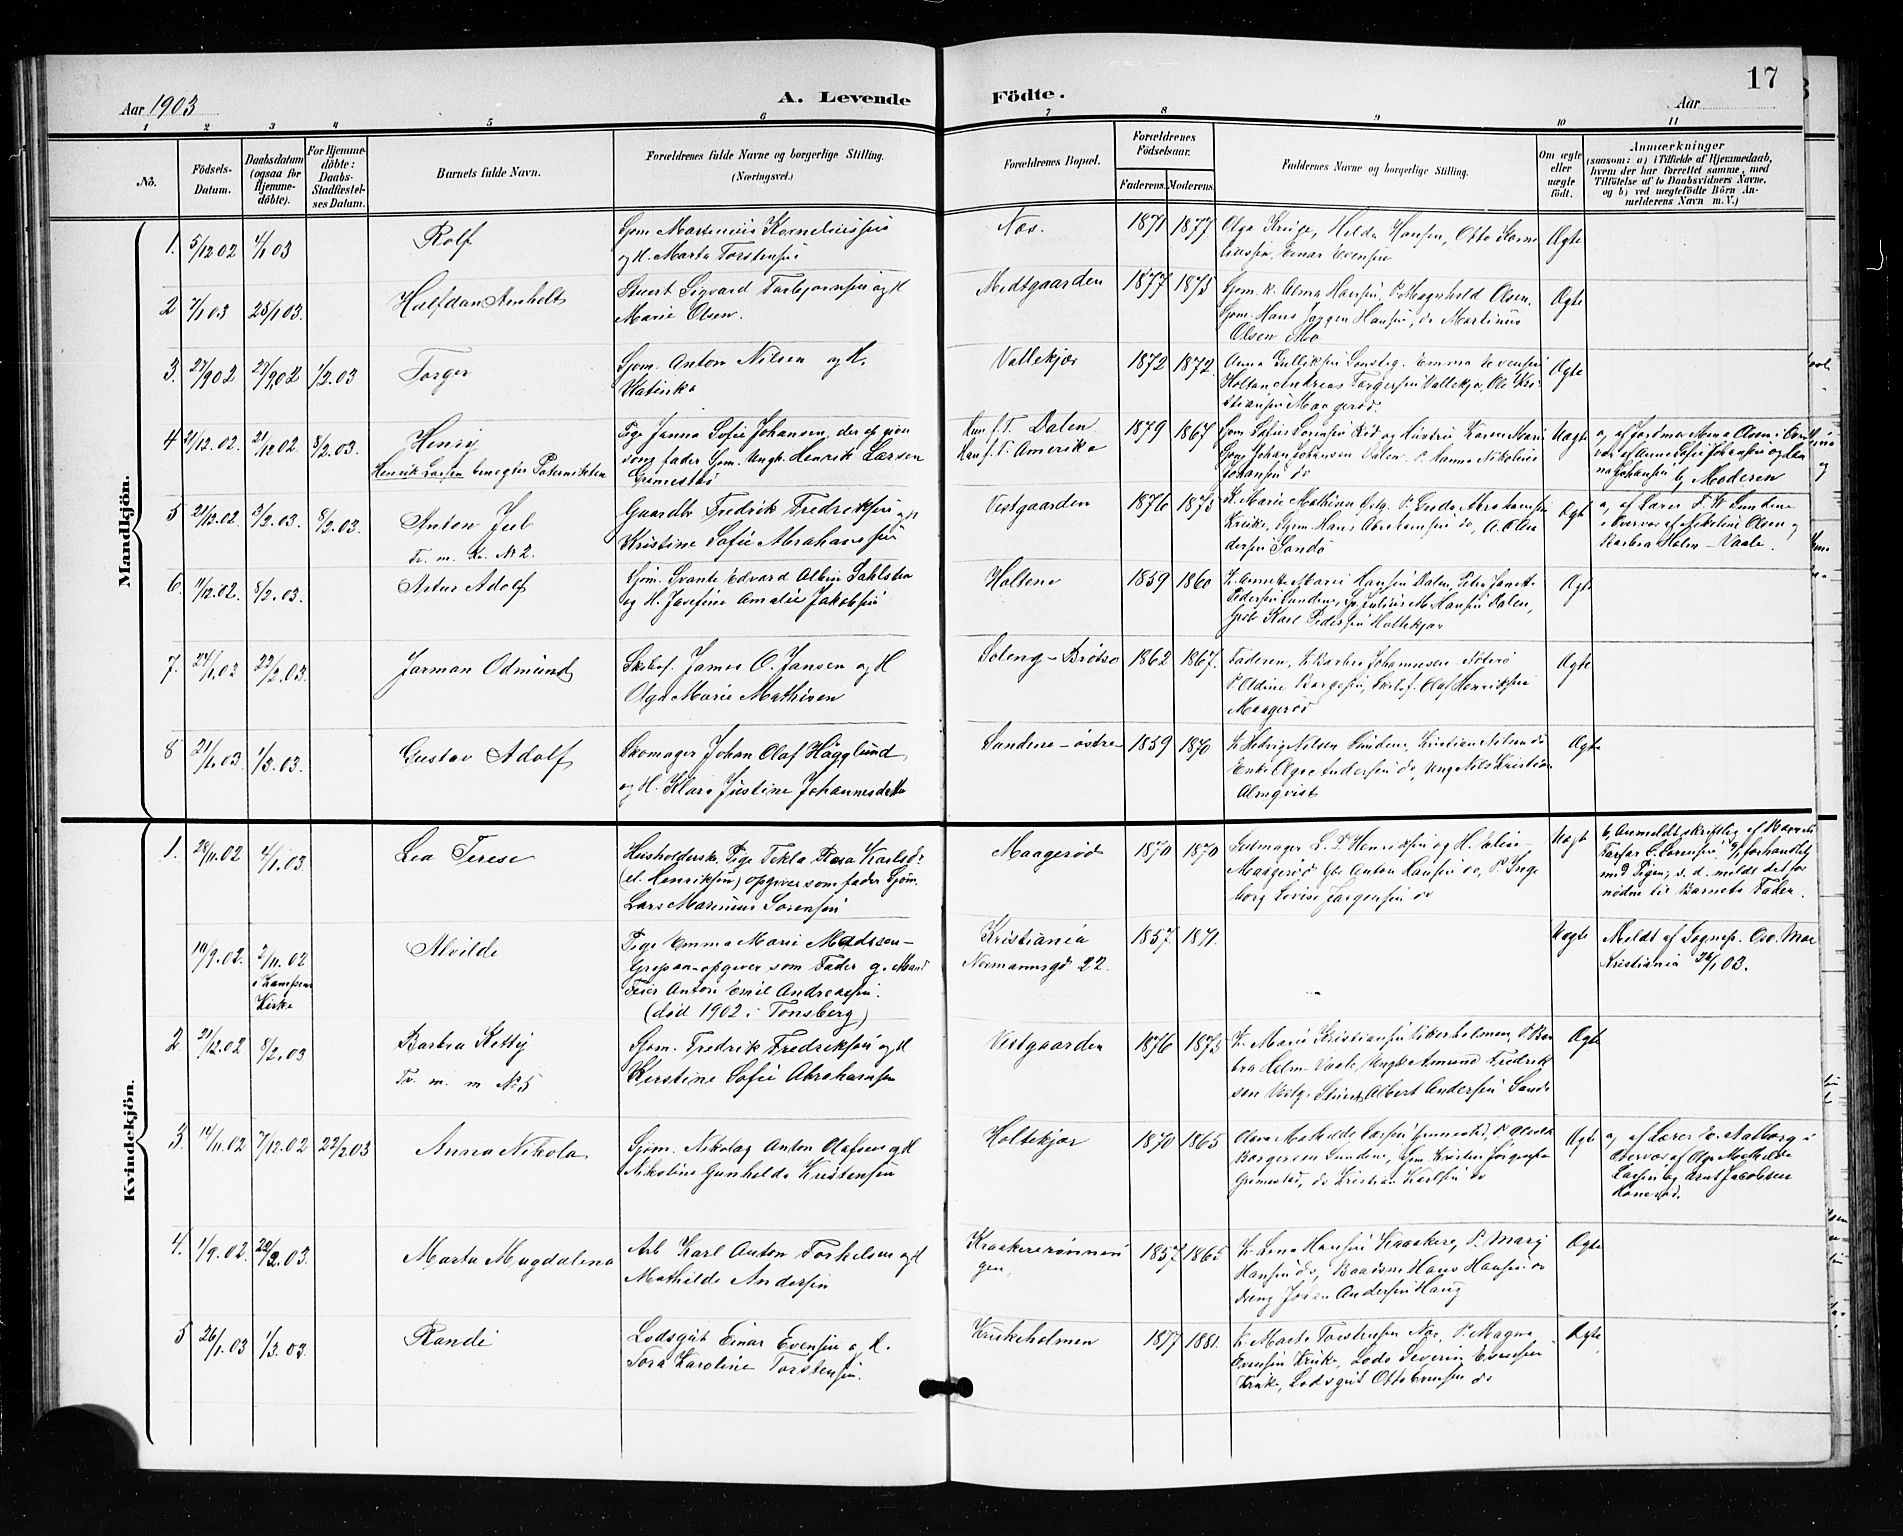 17
Aar 1903
A. Levende
Födte.
Aar
1 2 3 4 5 6 7 8 9 10 11
No.
Födsels-Datum.
Daabsdatum (ogsaa for Hjemme-döbte).
For Hjemme-döbte: Daabs-Stadfæstel-ses Datum.
Barnets fulde Navn.
Forældrenes fulde Navne og borgerlige Stilling.
(Næringsvei.)
Forældrenes Bopæl.
Forældrenes Födselsaar.
Faderens. Moderens.
Faddernes Navne og borgerlige Stilling.
Om ægte eller uægte födt.
Anmærkninger
(saasom: a) i Tilfælde af Hjemmedaab,
hvem der har forrettet samme, med
Tilföielse af to Daabsvidners Navne,
og b) ved uægtefödte Börn An-
melderens Navn m. V.)
Mandkjön.
1. 5/12 02 4/1 03 Rolf
Sjøm Martinius Korneliussen
og H. Marta Torstensen
Næs. 1871 1877
Olga Kruge, Hilda Hansen, Otto Korne
liussen, Einar Evensen
Ægte
2 7/1 03 25/1 03. Halfdan Arnholt
Stuert Sigvard Torbjørnsen og H
Marie Olsen.
Medtgaarden 1877 1875
Sjøm. k. Alma Hansen, P. Magnhild Olsen,
Sjøm. Hans Jørgen Hansen, do Martinus
Olsen Mo
Ægte
3. 27/9 02 29/9 02 1/2.03 Torger
Sjøm. Anton Nilsen og H.
Katinka
Vallekjær 1872 1872.
Anna Gulliksen, Emma Evensen
Holtan Andreas Torgersen Vallekjær, Ole Kri-
stiansen Maagerød.
Ægte
4 21/12.02. 21/12 02 8/2.03. Henry
Henrik Larsen benegter Paterniteten
Pige Janna Sofie Johansen, der opgiver
som fader Sjøm. Ungk. Henrik Larsen
Grimestad
Hun f. T. Dalen
Han f. T. Amerika
1879 1867
Sjøm Sofus Sørensen og Hustru Karen Marie
Sjøm Johan Johansen Dalen. P. Hanna Nikoline
Johansen do
Uægte
a, af Jordmor Anna Olsen i Over
vær af Anne Sofie Johansen og Han
na Johansen b, Moderen
5 21/12.02. 3/2.03. 8/2.03. Anton Jul
Tv. m. Kv. No 2.
Gaardbr Fredrik Fredriksen og H
Kristine Sofie Abrahamsen
Vestgaarden 1876 1875
K. Marie Mathisen, P. Gusta Abrahamsen
Kruke, Sjøm Hans Abrahamsen do, A. An
dersen Sandø
Ægte
a, af Lærer T. H. Sundene
i Overvær af Nikoline Olsen og
Barbra Holm – Vaale.
6 11/12.02. 8/2.03. Artur Adolf
Sjøm. Svante Edvard Albin Dahlsten
og H. Josefine Amalie Jakobsen
Holtene 1859 1860
K. Annette Marie Hansen Dalen, Petra Janette
Pedersen Sundene, Julius M. Hansen Dalen,
Gbr Karl Pedersen Holtekjær
Ægte
7. 24/1.03 22/2.03. Jarman Odmund
Skibsf. James O. Jansen og H
Olga Marie Mathisen
Soleng – Brøtsø 1862 1867.
Faderen, K Barbra Johannesen – Nøterø
P. Aldine Borgesen, Skibsf. Olaf Henriksen
Maagerød
Ægte
8 21/1.03. 1/3.03. Gustav Adolf
Skomager Johan Olaf Hägglund
og H. Klara Justine Johannesdatter
Sandene – østre 1859 1870
K. Hedvig Nilsen Sundene, Kristian Nilsen do
Enke Olga Andersen do, Ung Nils Kristian
Almqvist
Ægte
Kvindekjön.
1. 28/11.02 4/1.03. Lea Terese
Husholderske Pige Tekla Rosa Karlsd.
(el. Henriksen) opgiver som fader Sjøm.
Lars Marinius Sørensen
Maagerød 1870 1870
Seilmager L. P. Henriksen og H. Valei
Maagerød Gbr Anton Hansen do, P. Inge
borg Lovise Jørgensen do
Uægte
b, Anmeldt skriftlig af Barnets
Farfar C. Sørensen, forhandlet
med Pigen, s. d. meldt det for
nødne til Barnets Fader.
19/9.02. 2/11.02 i Kampens Kirke
Alvilde
Pige Emma Marie Madssen –
Gropan – opgiver som Fader g. Mand
Feier Anton Emil Andreassen.
(død 1902 i Tønsberg)
Kristiania
Normannsgd 22.
1857 1871.
Uægte
Meldt af Sognep. Osv. Moe
Kristiania 26/1 03.
2 21/12.02 8/2.03 Barbra Ketty
Tv. m. m No 5
Sjøm. Fredrik Fredriksen og H
Kirstine Sofie Abrahamsen
Vestgaarden 1876 1875
K. Marie Kristiansen Vikerholmen, P. Bar
bra Holm – Vaale, Ungk Amund Fredrik
sen Vestg. Stuert Albert Andersen Sandø
Ægte
3. 14/11.02 7/12.02 22/2.03 Anna Nikola
Sjøm. Nikolay Anton Olafsen og H
Nikoline Gunhilda Kristensen
Holtekjær 1870 1865
Olava Mathilde Larsen Grimestad, P.
Borgersen Sundene, Sjm. Kristen Jørgensen
Grimestad, do Kristian Karlsen do
Ægte
a, af Lærer Aalborg i
Overvær af Olga Mathilde
Larsen og Arnt Jacobsen
4. 1/9.02. 22/2.03. Marta Magdalena
Arb Karl Anton Torkelsen og H
Mathilde Andersen
Kraakererønnin
gen.
1857 1865
K. Lena Hansen Kraakere, P. Marg
Hansen do, Baadsm Hans Hansen do
dreng Johan Andersen Haug
Ægte
5 26/1.03 1/3.03. Randi
Lodsgut Einar Evensen og H.
Tora Karoline Torstensen.
Krukeholmen 1877 1881.
K. Marta Torstensen Næs, P. Magna
Evensen Kruke, Lods Severin Evensen
Kruke, Lodsgut Otto Evensen do
Ægte